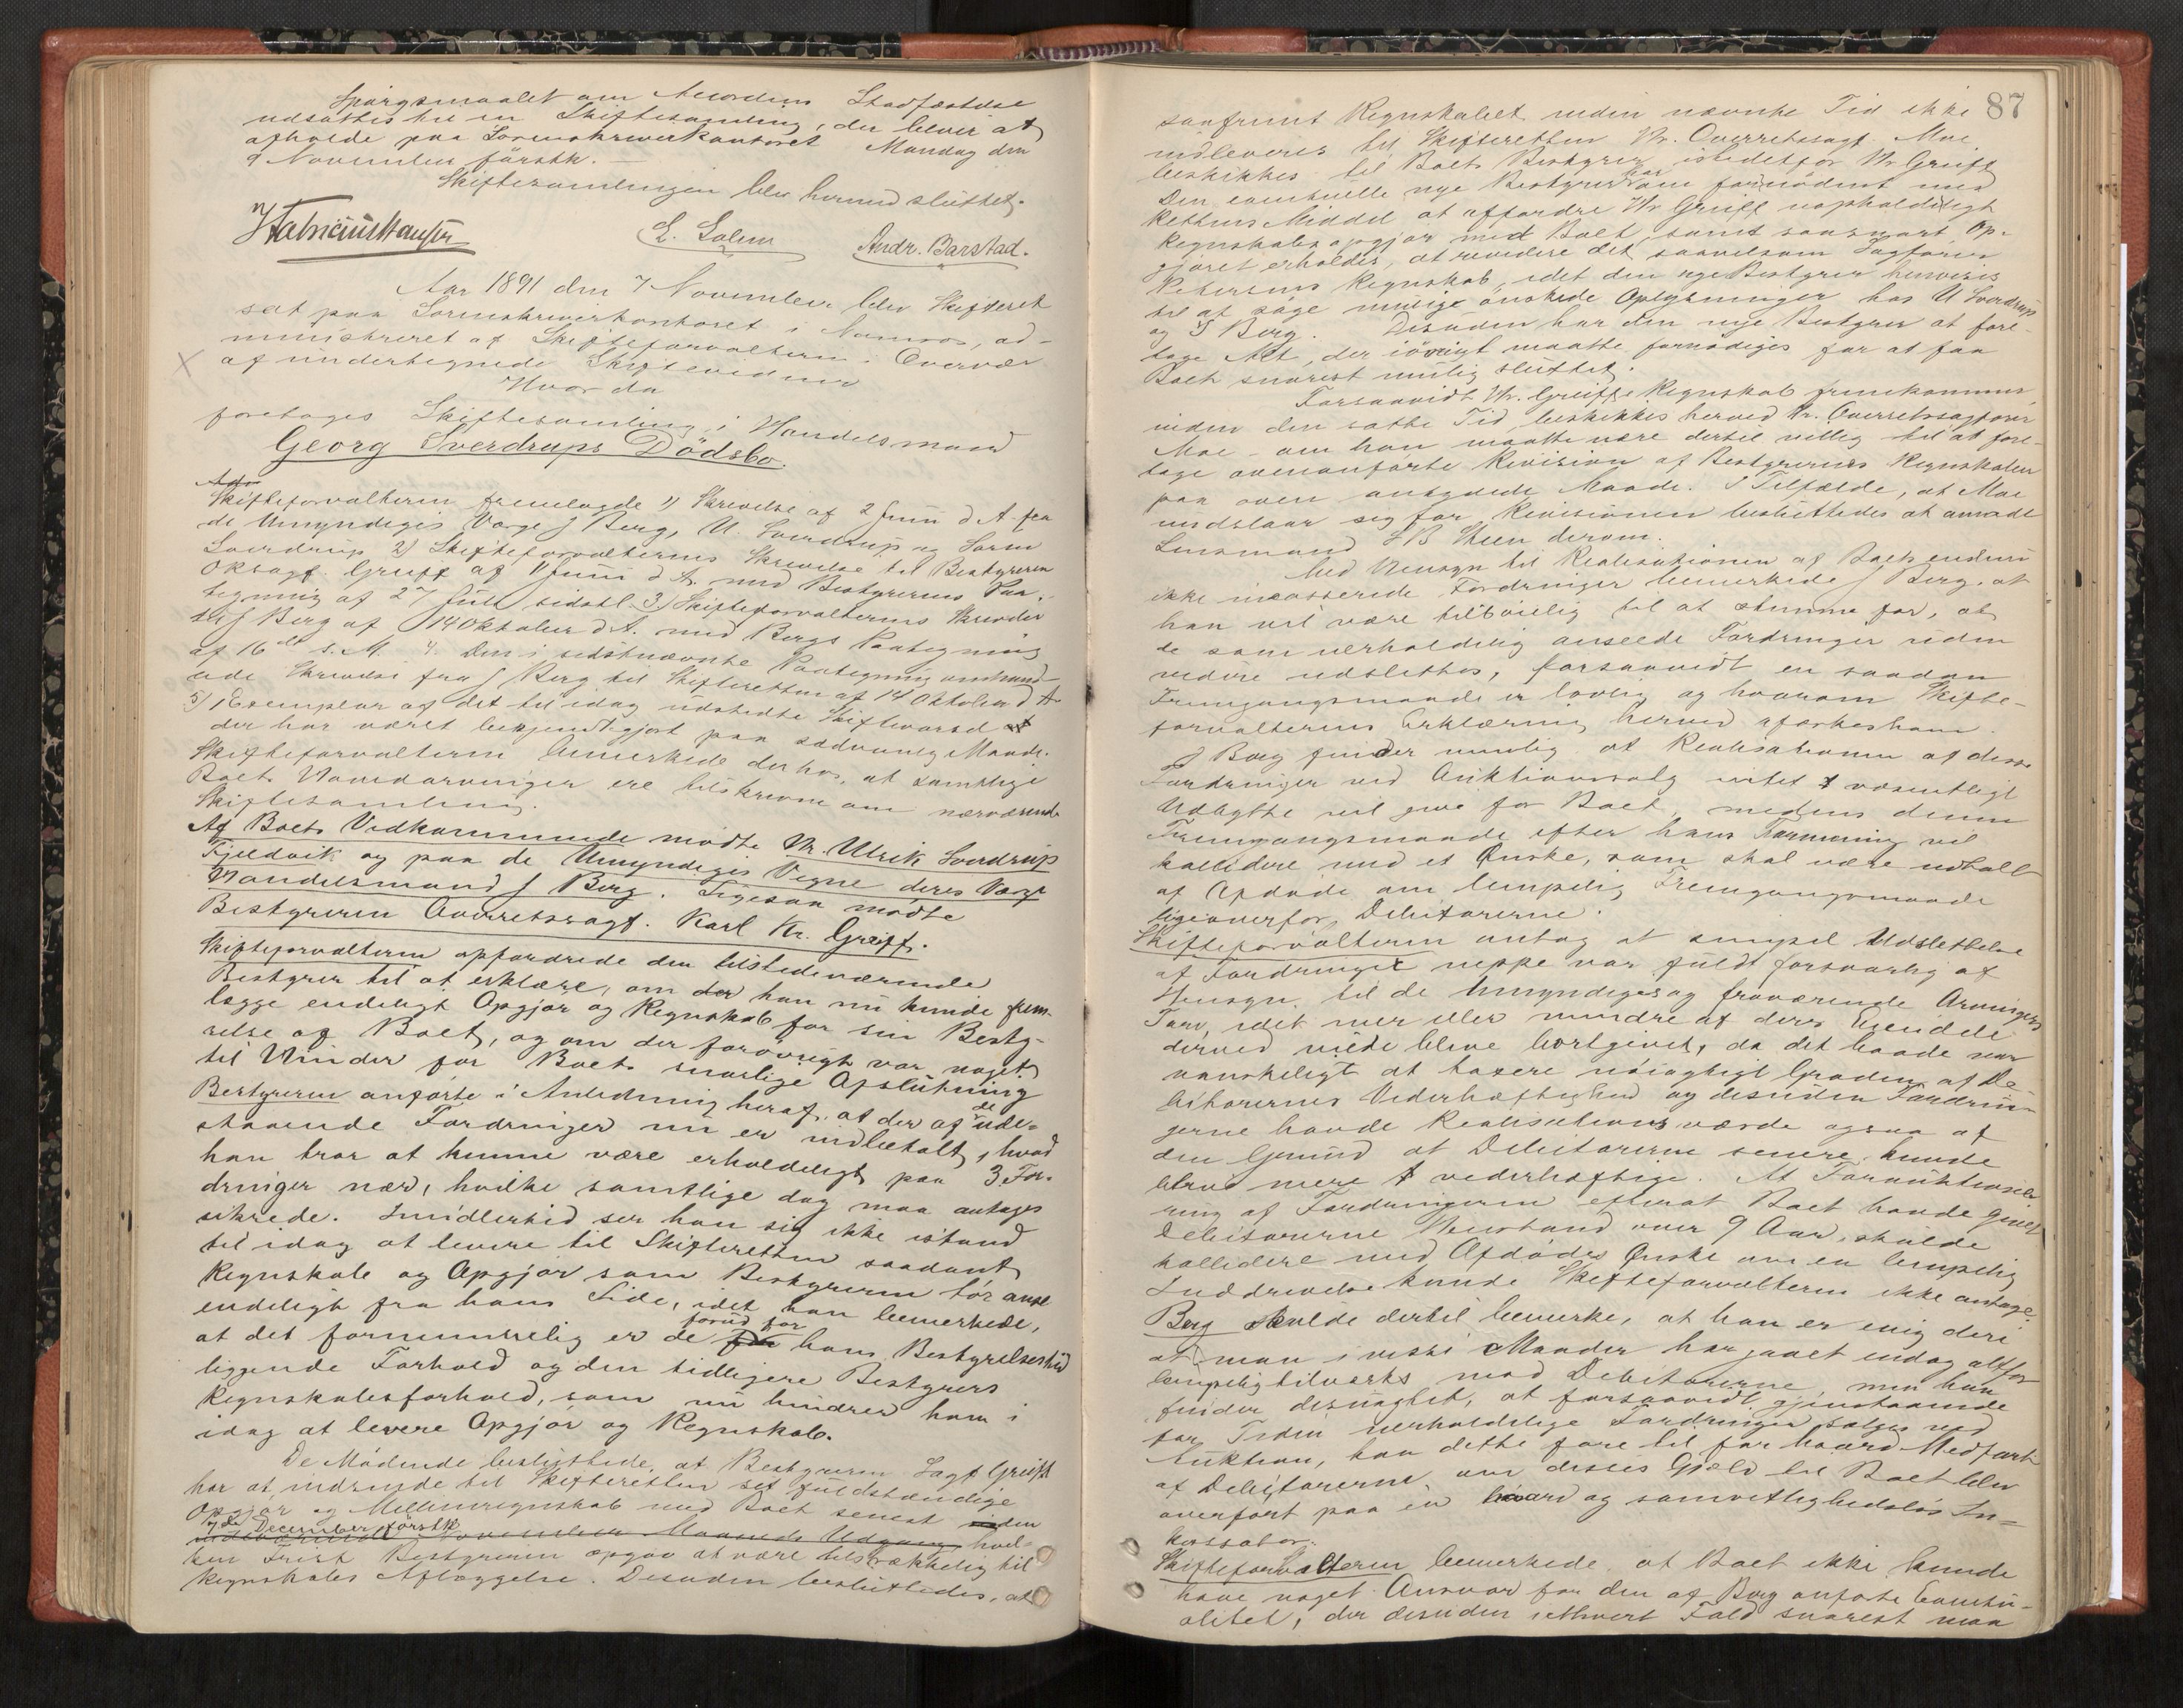 Spørgsmaalet om Accordens Stadfæstelse
udsattes til en Skiftesamling, der bliver at
afholde paa Sorenskriverkontoret Mandag den
9 November førstk. —
Skiftesamlingen blev hermed sluttet.
E. Salem
Andr. Barstad.
Aar 1891 den 7 November blev Skifteret
sat paa Sorenskriverkontoret i Namsos, ad-
ministreret af Skifteforvalteren i Overvær
af undertegnede Skiftevidner
Hvor da
foretages Skiftesamling i Handelsmand
Georg Sverdrups Dödsbo.
Skifteforvalteren fremlagde 1) Skrivelse af 2 Juni d A fra
de Umyndiges Værge J Berg, U. Sverdrup og Søren
Sverdrup 2) Skifteforvalterens Skrivelse til Bestyreren
ORsagf. Greiff af 11 Juni d A. med Bestyrerens Paa-
tegning af 27 Juli sidstl. 3) Skifteforvalterens Skrivelse
til J Berg af 14 Oktober d A. med Bergs Paategning
af 16de s. M. 4. Den i sidstnævnte Paategning omhand-
lede Skrivelse fra J Berg til Skifteretten af 14 Oktober d A
5) 1 Exemplar af det til idag udstedte Skiftevarsel
der har været bekjendtgjort paa sædvanlig Maade.
Skifteforvalteren bemærkede derhos, at samtlige
Boets Vedkommende ere tilskrevne om nærværende
Skiftesamling.
Af Boets Vedkommende mødte Hr. Ulrik Sverdrup
Fjeldvik og paa de Umyndiges Vegne deres Værge
Handelsmand J Berg. Ligesaa mødte
Bestyreren Overretssagf. Karl Kr. Greiff.
Skifteforvalteren opfordrede den tilstedeværende
Bestyrer til at erklære, om der han nu kunde frem-
lægge endeligt Opgjør og Regnskab for sin Besty-
relse af Boet, og om der forøvrigt var noget
til Hinder for Boets snarlige Afslutning
Bestyreren anførte i Anledning heraf, at der af de ude-
staaende Fordringer nu er indbetalt, hvad
han tror at kunne være erholdeligt paa 3 For-
dringer nær, hvilke samtlige dog maa antages
sikrede. Imidlertid ser han sig ikke istand
til idag at levere til Skifteretten saadant
Regnskab og Opgjør som Bestyreren tør anse
endeligt fra hans Side, idet han bemærkede,
at det fornemmelig er de forud for hans Bestyrelsestid
liggende Forhold og den tidligere Bestyrers
Regnskabsforhold, som nu hindrer ham i
idag at levere Opgjør og Regnskab.
De Mødende besluttede, at Bestyreren Sagf Greiff
har at indsende til Skifteretten sit fuldstændige
Opgjør og Mellemregnskab med Boet senest inden
7de December førstk
November Maaneds Udgang hvil-
ken Frist Bestyreren opgav at være tilstrækkelig til
Regnskabs Aflæggelse. Desuden besluttedes, at
87
saafremt Regnskabet inden nævnte Tid ikke
indleveres til Skifteretten Hr. Overretssagf. Moe
beskikkes til Boets Bestyrer istedetfor Hr Greiff
Den eventuelle nye Bestyrer har om fornødent med
Rettens Middel at affordre Hr Greiff uopholdeligt
Regnskabsopgjør med Boet, samt saasnart Op-
gjøret erholdes, at revidere det saavelsom Sagfører
Petersens Regnskab, idet den nye Bestyrer henvises
til at søge mulige ønskede Oplysninger hos U Sverdrup
og J Berg. Desuden har den nye Bestyrer at fore-
tage Alt, der iøvrigt maatte fornødiges for at faa
Boet snarest mulig sluttet.
Forsaavidt Hr. Greiffs Regnskab fremkommer
inden den satte Tid, beskikkes herved Hr. Overretssagfører
Moe – om han maatte være dertil villig til at fore-
tage ovenanførte Revision af Bestyrernes Regnskaber
paa oven antydede Maade. I Tilfælde, at Moe
undslaar sig for Revisionen besluttedes at anmode
Lensmand B Steen derom.
Med Hensyn til Realisationen af Boets endnu
ikke incasserede Fordringer bemærkede J Berg, at
han vil være tilbøielig til at stemme for, at
de som uerholdelig anseede Fordringer uden
videre udslettes, forsaavidt en saadan
Fremgangsmaade er lovlig og hvorom Skifte-
forvalterens Erklæring herved æskes ham.
J Berg finder nemlig at Realisationen af disse
Fordringer ved Auktionssalg intet væsentligt
Udbytte vil give for Boet, medens denne
Fremgangsmaade efter hans Formening vil
kollidere med et Ønske, som skal være udtalt
af Afdøde om lempelig Fremgangsmaade
ligeoverfor Debitorerne.
Skifteforvalteren antog at simpel Udslettelse
af Fordringer neppe var fuldt forsvarlig af
Hensyn til de Umyndiges og fraværende Arvingers
Tarv, idet mer eller mindre af deres Eiendele
derved vilde blive bortgivet, da det baade var
vanskeligt at taxere nøiagtigt Graden af De-
bitorernes Vederhæftighed og desuden Fordrin-
gerne havde Realisationsværde ogsaa af
den Grund at Debitorerne senere kunde
blive mere vederhæftige. At Forauktionse-
ring af Fordringerne efterat Boet havde givet
Debitorerne Henstand over 9 Aar, skulde
kollidere med Afdødes Ønske om en lempelig
Inddrivelse kunde Skifteforvalteren ikke antage.
Berg skulde dertil bemærke, at han er enig deri
at man i visse Maader har gaaet endog altfor
lempelig tilværks mod Debitorerne, men han
finder desuagtet, at forsaavidt gjenstaaende
for Tiden uerholdelige Fordringer sælges ved
Auktion, kan dette føre til for haard Medfart
af Debitorerne, om disses Gjæld til Boet blev
overført paa en haard og samvittighedsløs In-
kassator.
Skifteforvalteren bemærkede at Boet ikke kunde
have noget Ansvar for den af Berg anførte Eventu-
alitet, der desuden i ethvert Fald snarest maa